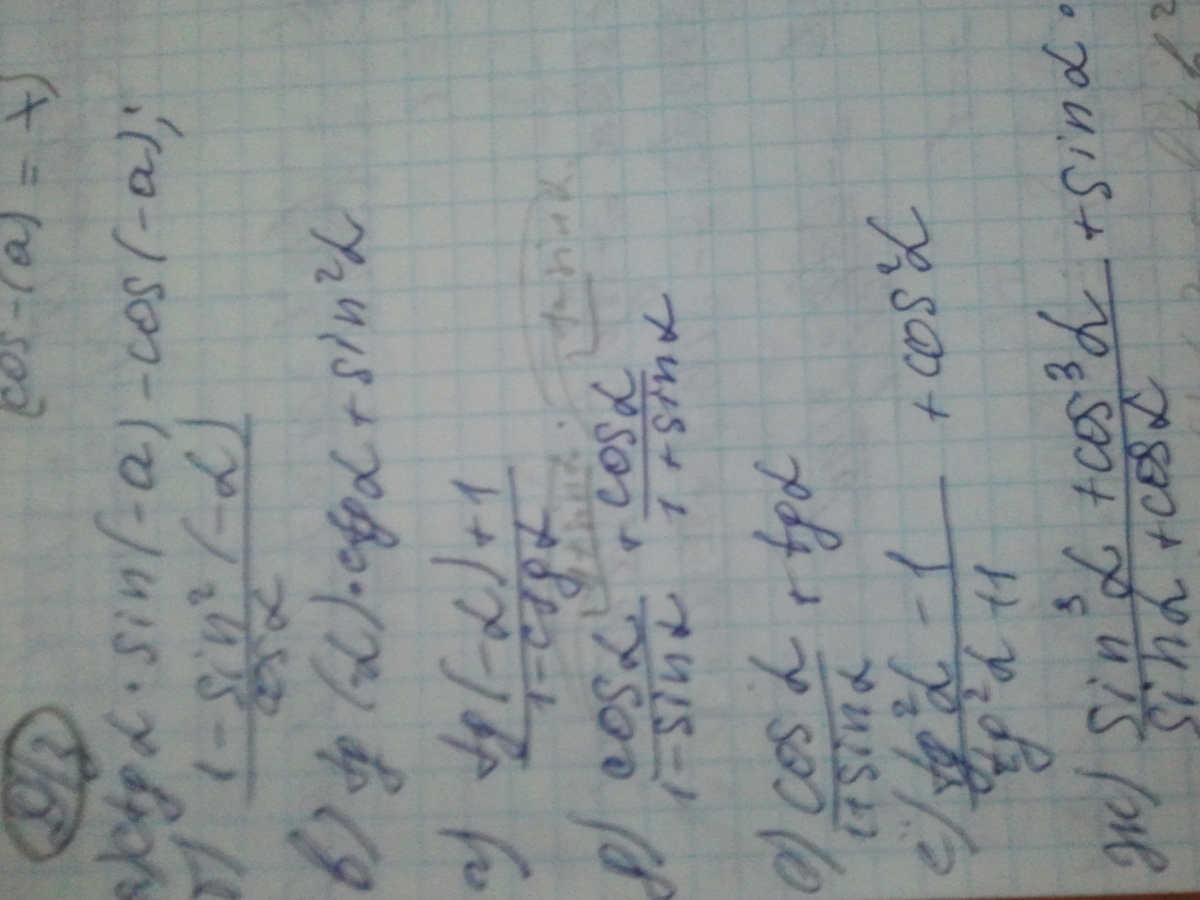 cos-(a) = x
D/з
а) ctgα · sin(-a) - cos(-a);
б) 1 - sin²(-α) / cosα
в) tg(-α) · ctgα + sin²α
г) tg(-α) + 1 / 1 - ctgα
д) cosα / 1 - sinα + cosα / 1 + sinα
е) cosα / 1 + sinα + tgα
ё) tg²α - 1 / tg²α + 1 + cos²α
ж) sin³α + cos³α / sinα + cosα + sinα ·